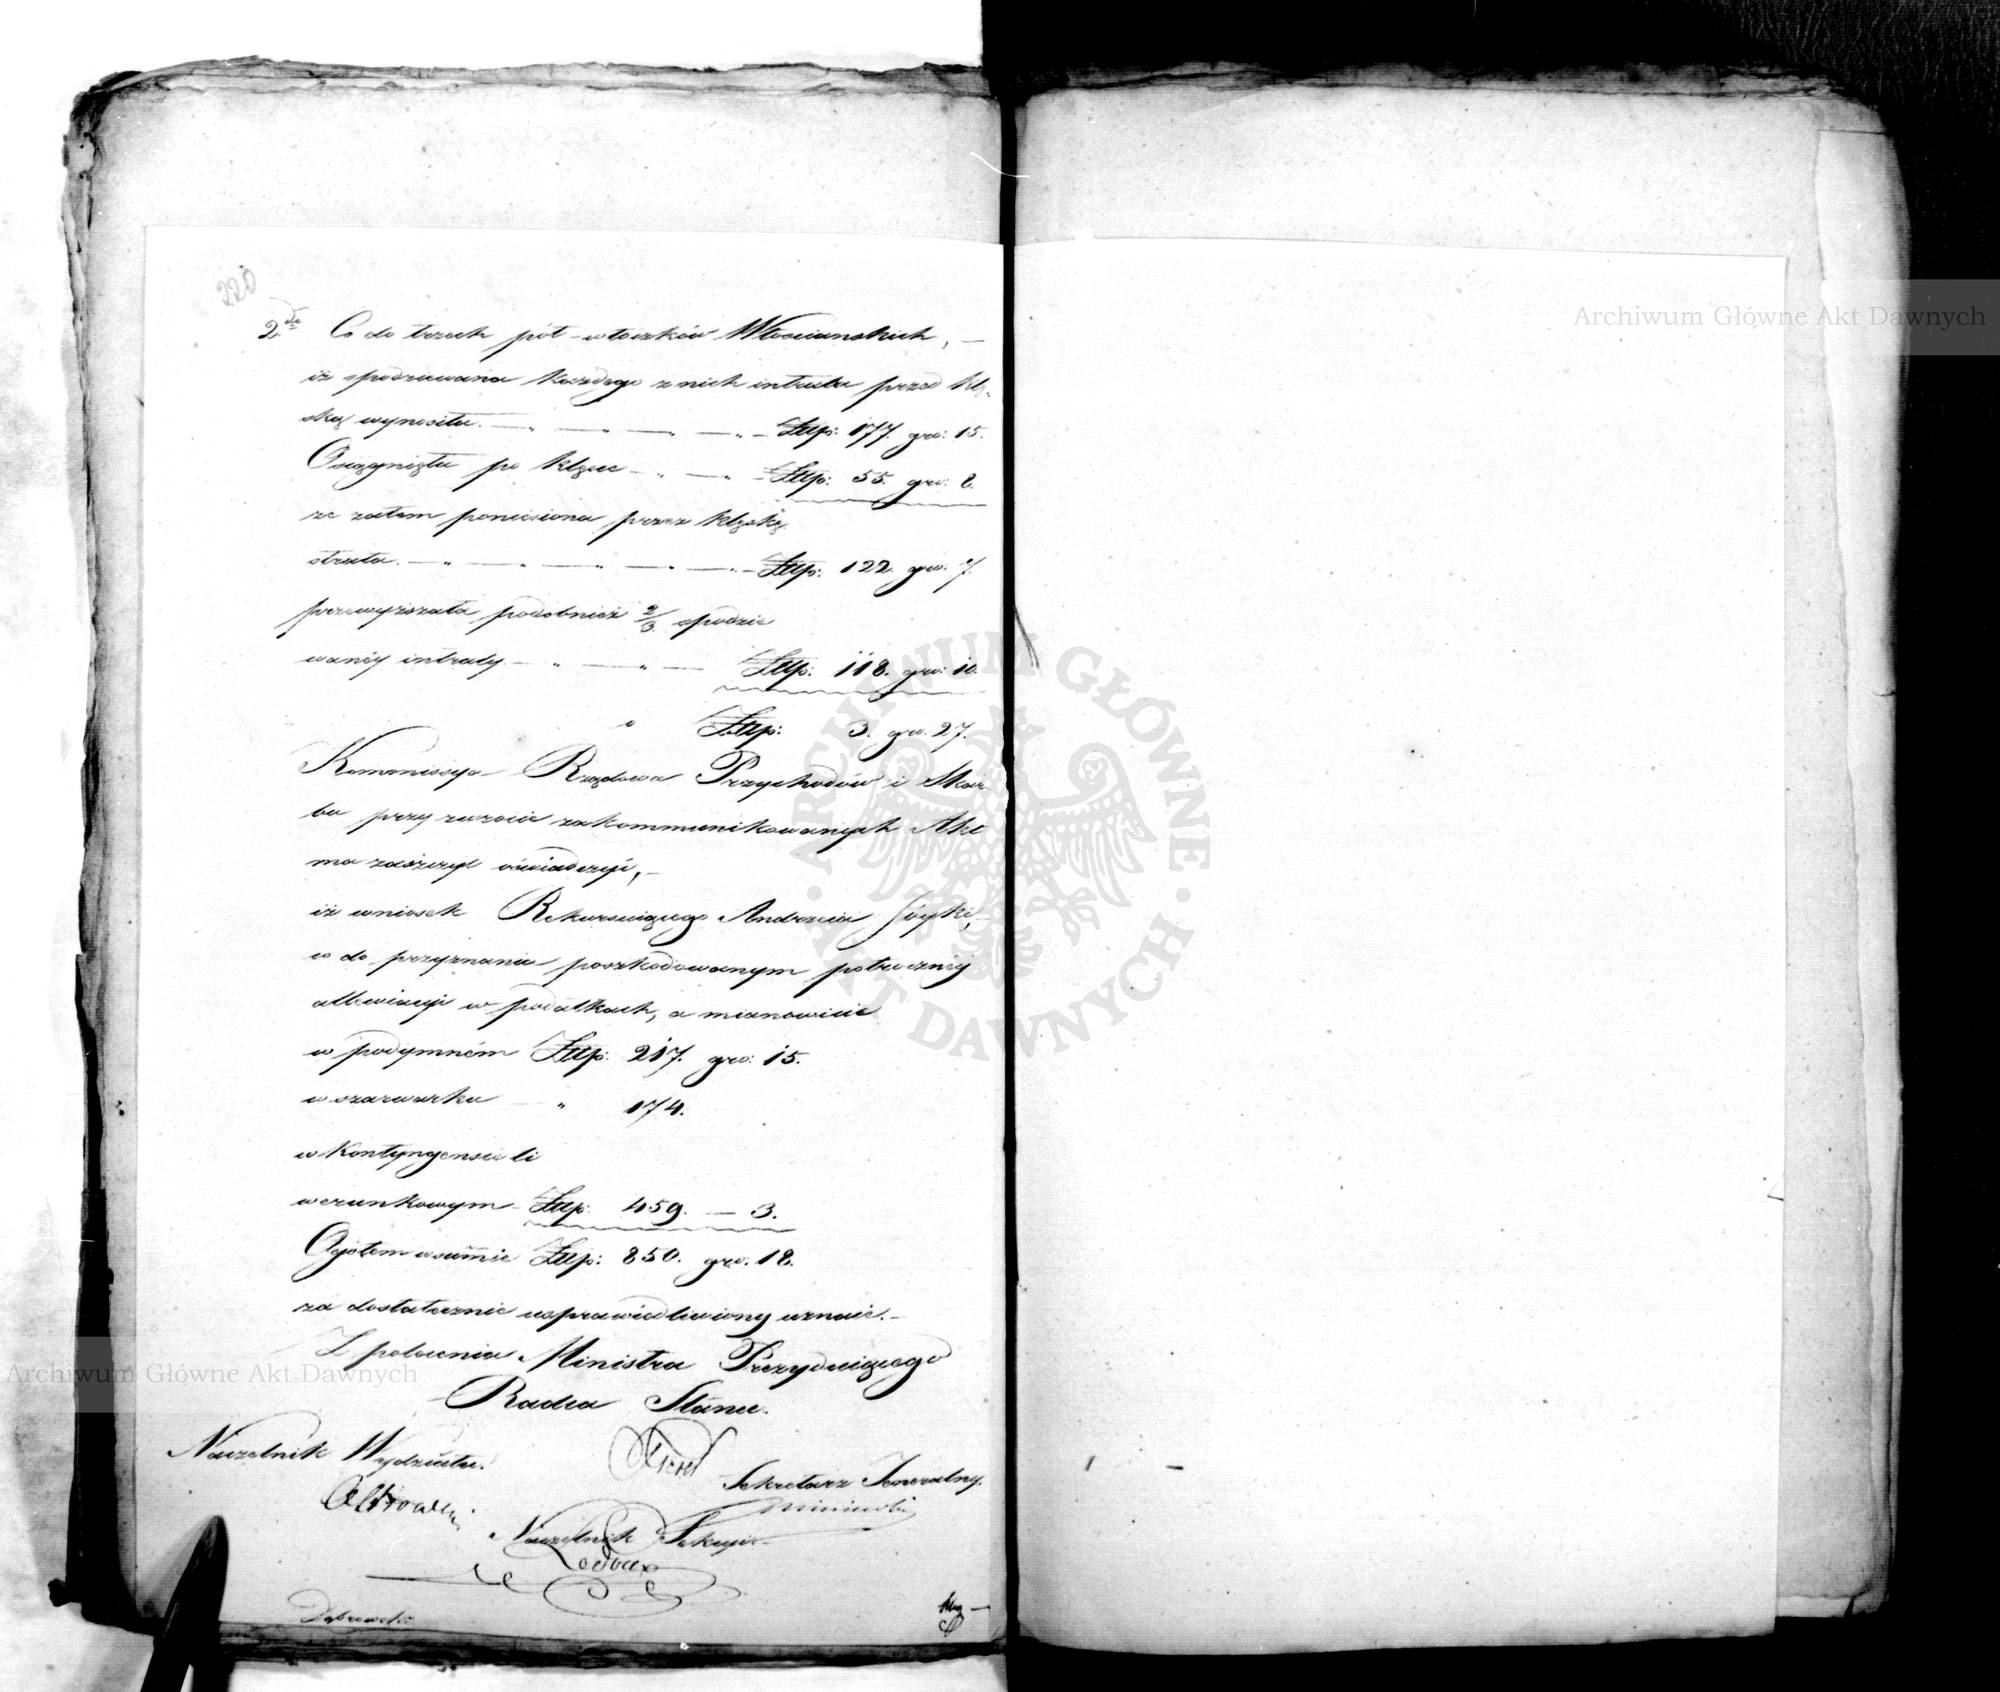 220
2do Co do trzech pół-włoczków Włosciańskich, —
iż spodziewana każdego z nich intrata przed klę-
ską wynosiła. — „ — „ — „ — „ — Złp: 177. gr: 15.
Osiągnięta po klęsce — „ — „ — Złp: 55. gr: 8.
że zatem poniesiona przez klęskę
strata. — „ — „ — „ — „ — „ — Złp: 122. gr: 7.
przewyższała podobnież 2/3 spodzie
wanéy intraty — „ — „ — Złp: 118. gr: 10.
Złp: 3. gr: 27.
Kommissya Rządowa Przychodów i Skar
bu przy zwrocie zakommunikowanych Akt
ma zaszczyt oświadczyć, —
iż wniosek Rekursuiącego Andrzeia
co do przyznania poszkodowanym potroczniéy
allewiacyi w podatkach, a mianowicie
w podymném Złp: 217. gr: 15.
w szarwarku „ 174.
w Kontyngensie li
werunkowym — Złp: 459. — 3.
Ogółem w summie Złp: 850. gr: 18.
za dostatecznie usprawiedliwiony uznaie. —
Z polecenia Ministra Prezyduiącego
Radca Stanu.
Naczelnik Wydziału.
Sekretarz Jeneralny.
Naczelnik Sekcyi
Dąbrowski
Archiwum Główne Akt Dawnych
Archiwum Główne Akt Dawnych
ARCHIWUM GŁÓWNE · AKT DAWNYCH ·